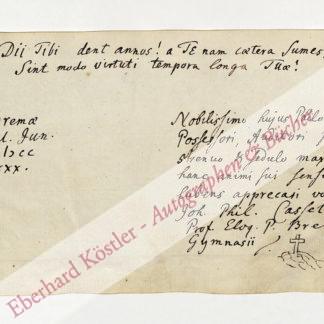 Dii Tibi dent annos! a TE nam cætera sumes,
Sint modo virtuti tempora longa Tuæ!
remæ
Jun.
Nobilissimo hujus
Possessori, Auditori
strenuo sedulo
hanc animi sui
lubens apprecari
Joh. Phil. Cassel
Prof. Eloq. P. Bre
Gymnasii
Eberhard Köstler - Autographen & Bücher